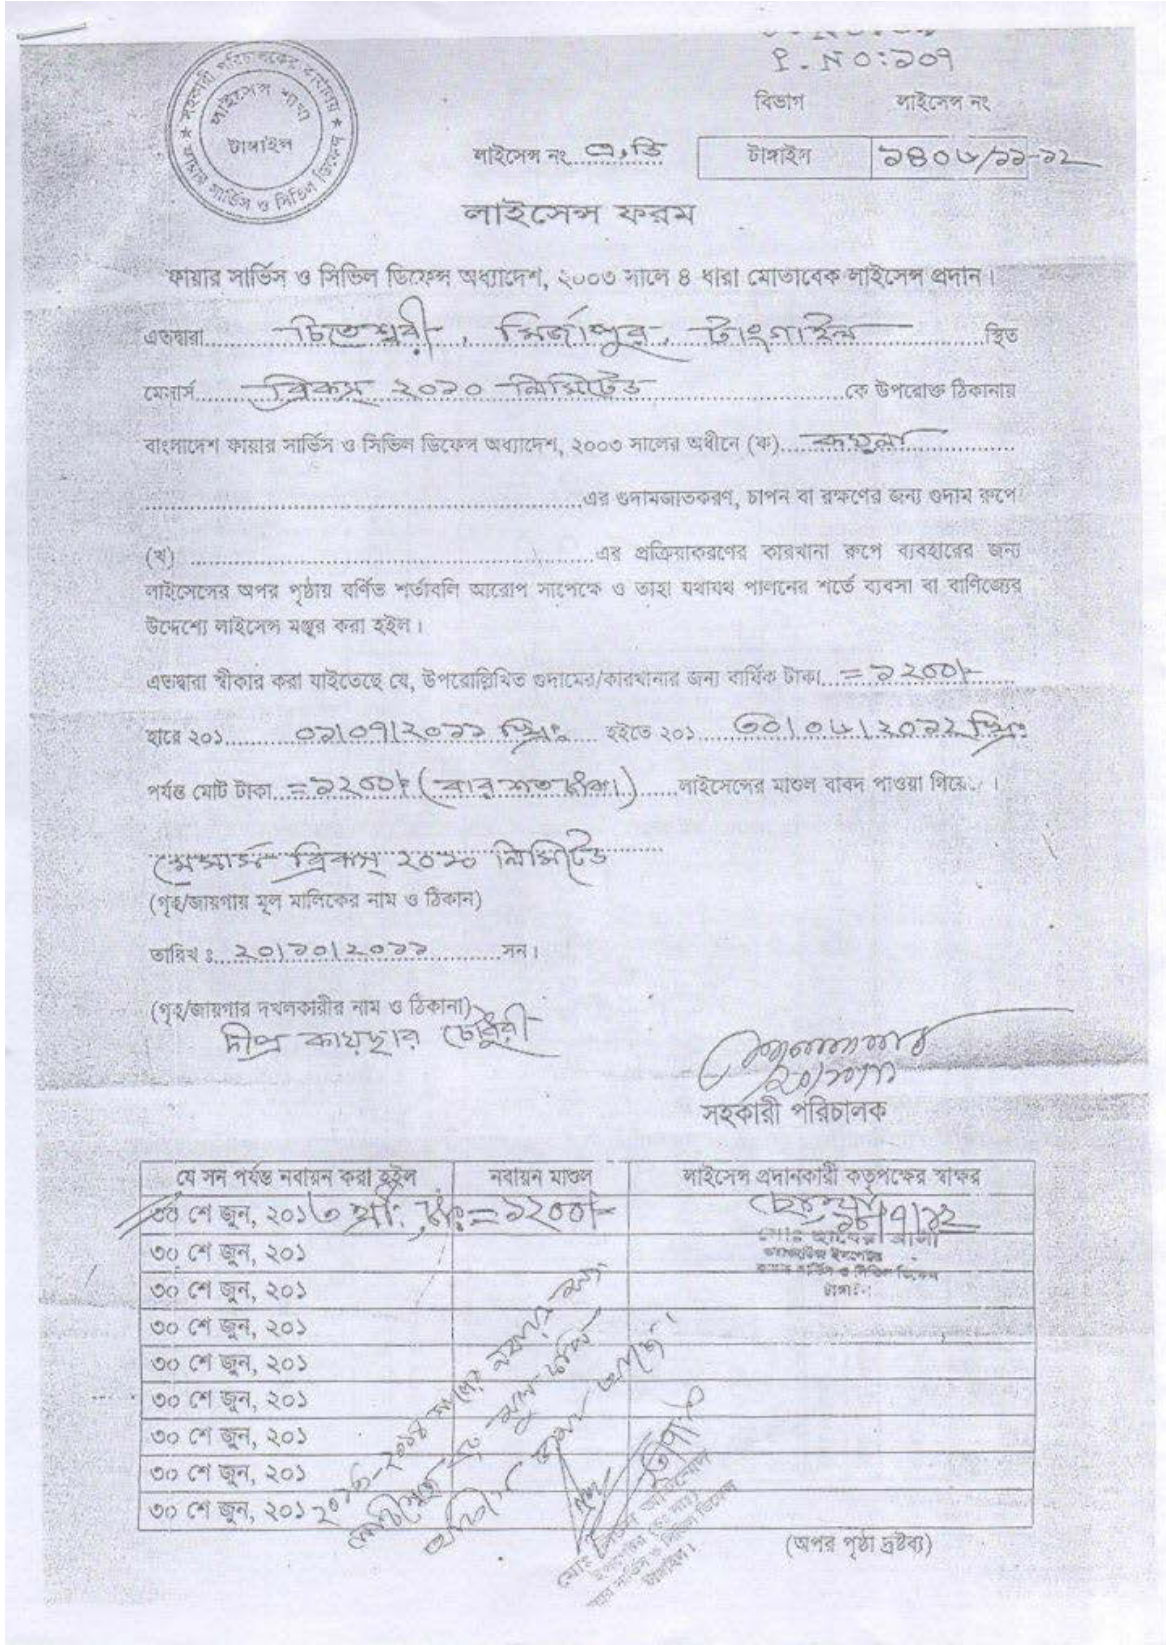 P. NO:১০৭
বিভাগ লাইসেন্স নং
সহকারী পরিচালকের কার্যালয়
ফায়ার সার্ভিস ও সিভিল ডিফেন্স
লাইসেন্স শাখা
টাঙ্গাইল
লাইসেন্স নং টাঙ্গাইল ১৪০৬/১১-১২
লাইসেন্স ফরম
ফায়ার সার্ভিস ও সিভিল ডিফেন্স অধ্যাদেশ, ২০০৩ সালে ৪ ধারা মোতাবেক লাইসেন্স প্রদান।
এতদ্বারা চিতেশ্বরী, মির্জাপুর, টাংগাইল স্থিত
মেসার্স ব্রিকস্ ২০১০ লিমিটেড কে উপরোক্ত ঠিকানায়
বাংলাদেশ ফায়ার সার্ভিস ও সিভিল ডিফেন্স অধ্যাদেশ, ২০০৩ সালের অধীনে (ক) কয়লা
এর গুদামজাতকরণ, চাপন বা রক্ষণের জন্য গুদাম রুপে
(খ) এর প্রক্রিয়াকরণের কারখানা রুপে ব্যবহারের জন্য
লাইসেন্সের অপর পৃষ্ঠায় বর্ণিত শর্তাবলি আরোপ সাপেক্ষে ও তাহা যথাযথ পালনের শর্তে ব্যবসা বা বাণিজ্যের
উদ্দেশ্যে লাইসেন্স মঞ্জুর করা হইল।
এতদ্বারা স্বীকার করা যাইতেছে যে, উপরোল্লিখিত গুদামের/কারখানার জন্য বার্ষিক টাকা =১২০০/-
হারে ২০১ ০১/০৭/২০১১ খ্রিঃ হইতে ২০১ ৩০/০৬/২০১২ খ্রিঃ
পর্যন্ত মোট টাকা =১২০০/- (বার শত টাকা) লাইসেন্সের মাশুল বাবদ পাওয়া গিয়ে।
মেসার্স ব্রিকস্ ২০১০ লিমিটেড
(গৃহ/জায়গায় মূল মালিকের নাম ও ঠিকান)
তারিখ ঃ ২০/১০/২০১১ সন।
(গৃহ/জায়গার দখলকারীর নাম ও ঠিকানা)
দীপ্র কায়ছার চৌধুরী
২০/১০/১১
সহকারী পরিচালক
যে সন পর্যন্ত নবায়ন করা হইল নবায়ন মাশুল লাইসেন্স প্রদানকারী কতৃপক্ষের স্বাক্ষর
৩০ শে জুন, ২০১৩ খ্রি: =১২০০/- ১৮/৭/১২
৩০ শে জুন, ২০১
ওয়্যারহাউজ ইন্সপেক্টর
৩০ শে জুন, ২০১ ফায়ার সার্ভিস ও সিভিল ডিফেন্স
টাঙ্গাইল
৩০ শে জুন, ২০১
৩০ শে জুন, ২০১
৩০ শে জুন, ২০১
৩০ শে জুন, ২০১
৩০ শে জুন, ২০১
৩০ শে জুন, ২০১
২০১৩-২০১৪ সালের নবায়ন
ফায়ার সার্ভিস ও সিভিল ডিফেন্স
টাঙ্গাইল।
(অপর পৃষ্ঠা দ্রষ্টব্য)